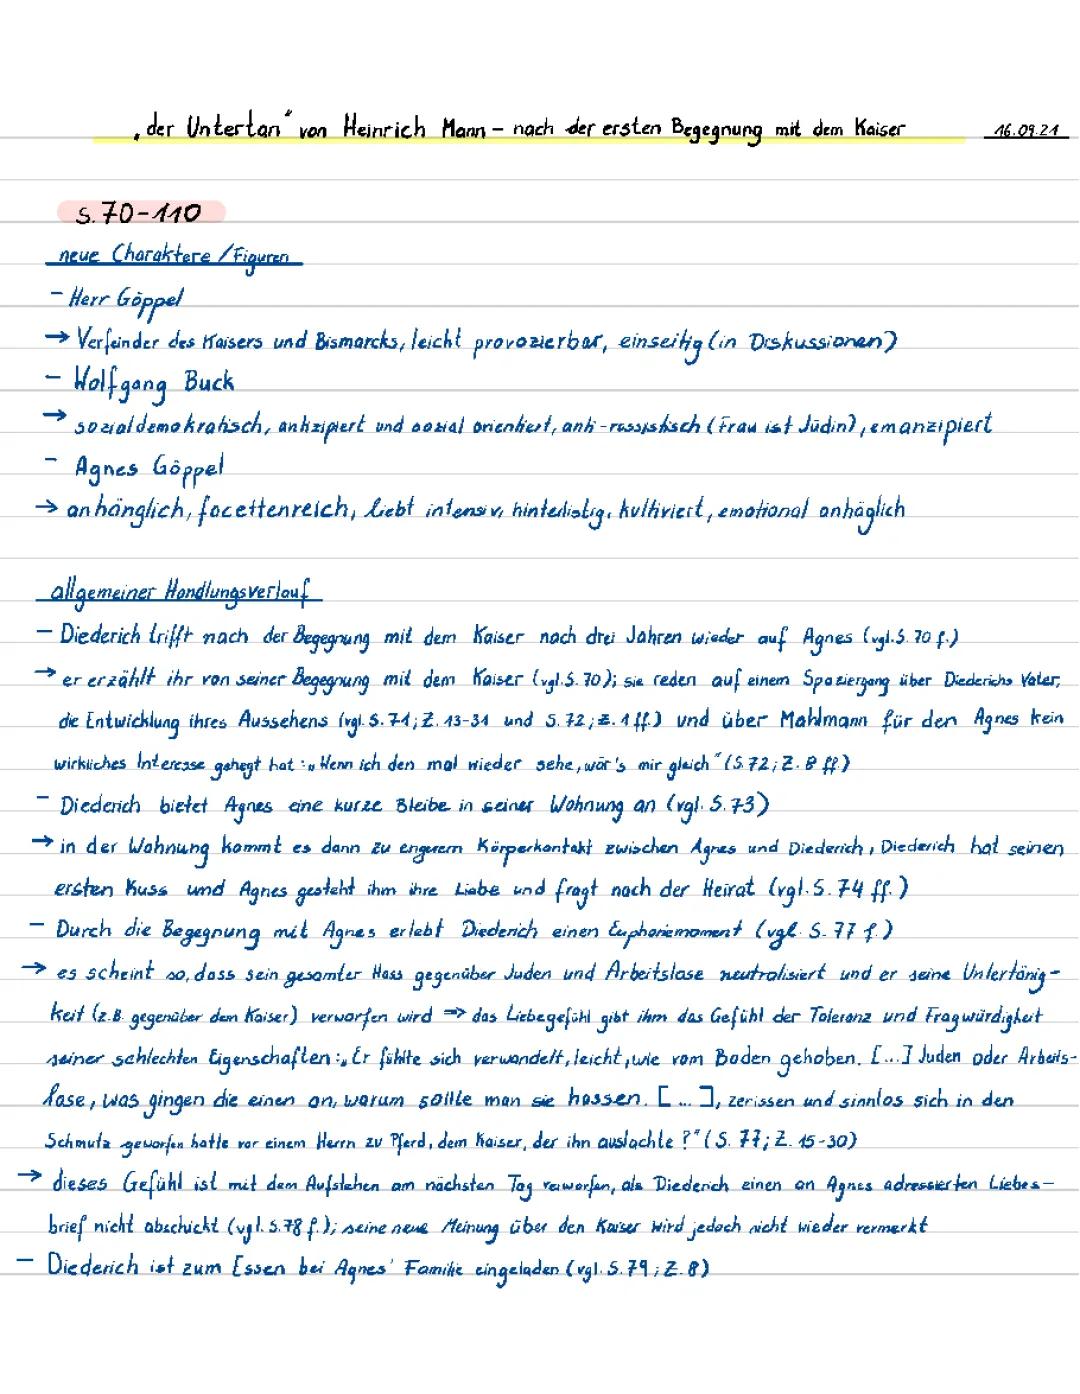 „der Untertan" von Heinrich Mann - nach der ersten Begegnung mit dem Kaiser 16.09.21
S. 70-110
neue Charaktere / Figuren
- Herr Göppel
→ Verfeinder des Kaisers und Bismarcks, leicht provozierbar, einseitig (in Diskussionen)
- Wolfgang Buck
→ sozialdemokratisch, antizipiert und sozial orientiert, anti-rassistisch (Frau ist Jüdin), emanzipiert
- Agnes Göppel
→ anhänglich, facettenreich, liebt intensiv, hinterlistig, kultiviert, emotional anhäglich
allgemeiner Handlungsverlauf
- Diederich trifft nach der Begegnung mit dem Kaiser nach drei Jahren wieder auf Agnes (vgl. S. 70 f.)
→ er erzählt ihr von seiner Begegnung mit dem Kaiser (vgl. S. 70); sie reden auf einem Spaziergang über Diederichs Vater,
die Entwicklung ihres Aussehens (vgl. S. 71; Z. 13-31 und S. 72; Z. 1 ff.) und über Mahlmann für den Agnes kein
wirkliches Interesse gehegt hat: „Wenn ich den mal wieder sehe, wär's mir gleich" (S. 72; Z. 8 ff.)
- Diederich bietet Agnes eine kurze Bleibe in seiner Wohnung an (vgl. S. 73)
→ in der Wohnung kommt es dann zu engerem Körperkontakt zwischen Agnes und Diederich, Diederich hat seinen
ersten Kuss und Agnes gesteht ihm ihre Liebe und fragt nach der Heirat (vgl. S. 74 ff.)
- Durch die Begegnung mit Agnes erlebt Diederich einen Euphoriemoment (vgl. S. 77 f.)
→ es scheint so, dass sein gesamter Hass gegenüber Juden und Arbeitslose neutralisiert und er seine Untertänig-
keit (z.B. gegenüber dem Kaiser) verworfen wird => das Liebegefühl gibt ihm das Gefühl der Toleranz und Fragwürdigkeit
seiner schlechten Eigenschaften: „Er fühlte sich verwandelt, leicht, wie vom Boden gehoben. [...] Juden oder Arbeits-
lose, was gingen die einen an, warum sollte man sie hassen. [...], zerissen und sinnlos sich in den
Schmutz geworfen hatte vor einem Herrn zu Pferd, dem Kaiser, der ihn auslachte?" (S. 77; Z. 15-30)
→ dieses Gefühl ist mit dem Aufstehen am nächsten Tag verworfen, als Diederich einen an Agnes adressierten Liebes-
brief nicht abschickt (vgl. S. 78 f.); seine neue Meinung über den Kaiser wird jedoch nicht wieder vermerkt
- Diederich ist zum Essen bei Agnes' Familie eingeladen (vgl. S. 79; Z. 8)